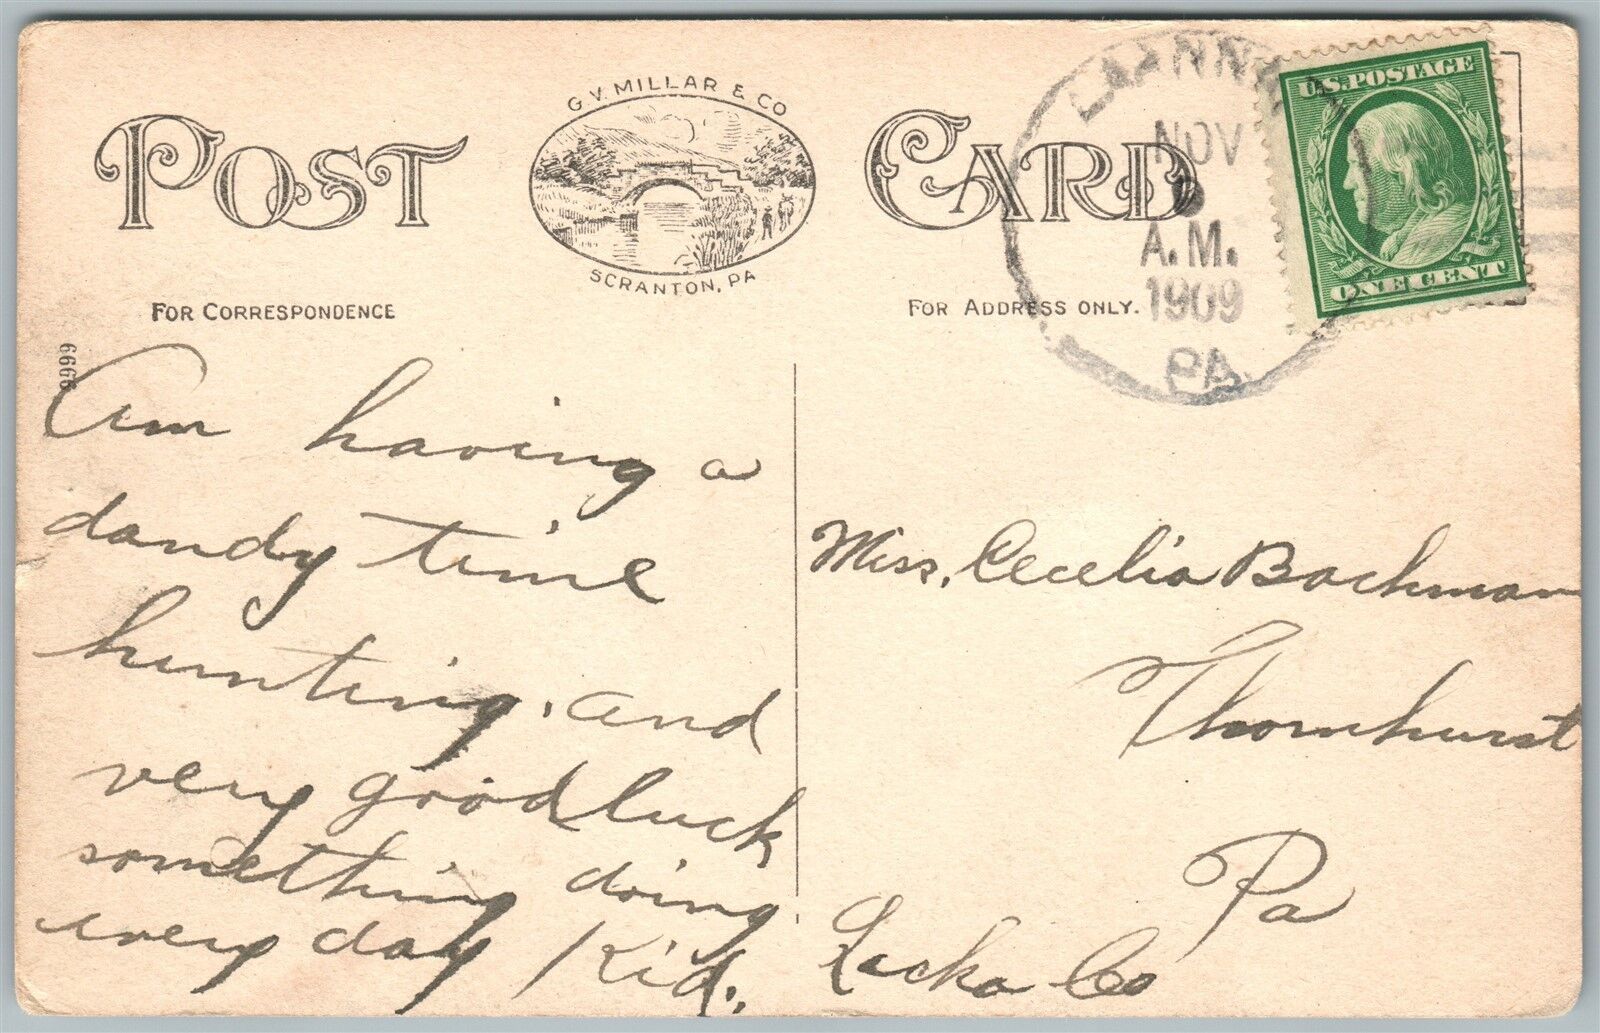 G. V. MILLAR & CO
POST CARD
SCRANTON, PA
FOR CORRESPONDENCE
FOR ADDRESS ONLY.
9999
NOV
A.M.
1909
PA.
U.S. POSTAGE
ONE CENT
Am having a
dandy time
hunting, and
very good luck
something doing
every day Kid.
Miss. Cecelia Bachman
Thornhurst
Pa
Lacka Co